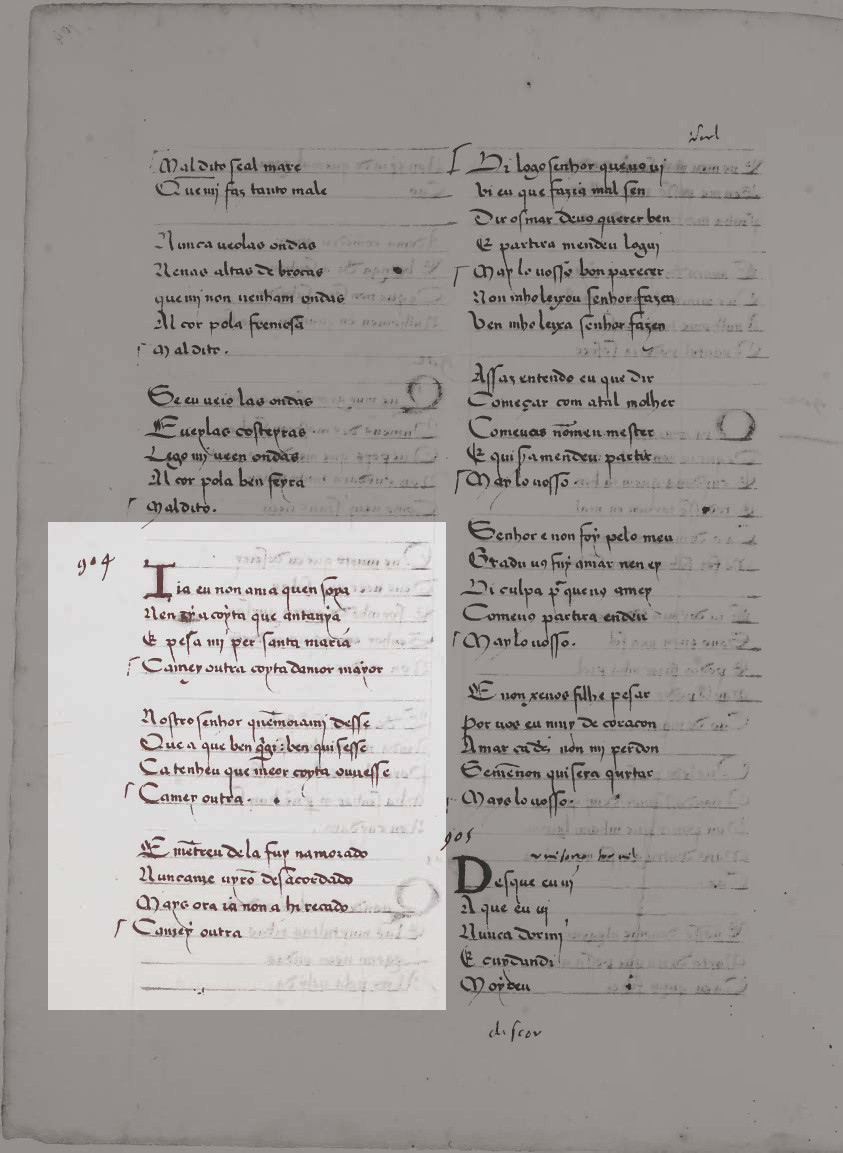 Maldito seal mare
Que mj faz tanto male
Nunca ueolas ondas
Nenas altas de brocas
que mj non uenham ondas
Al cor pola fremosã
Maldito.
Se eu ueio las ondas
E ueylas costeyras
Lego mj ueen ondas
Al cor pola ben feyta
Maldito.
904
Iia eu non ania quen soya
Nen a coyta que antanya
E pesa mj per santa maria
Camey outra coyta damor mayor
Nostro senhor quẽmorami desse
Que a que ben q̃gi: ben quisesse
Ca tenheu que meor coyta ouuesse
Camey outra.
E metreu dela fuy namorado
Nuncame uyrõ desacordado
Mays ora ia non a hi recado
Camey outra
Di logo senhor queuo uj
Vi eu que fazia mal sen
Dir osmar deuo querer ben
E partira mendeu loguj
May lo uosso bon parecer
Non mho leyxou senhor fazen
Ven mho leixa senhor fazen
Assaz entendo eu que dir
Começar com atal molher
Comeuos nõmen mester
E qui ha mendeu partir
May lo uosso.
Senhor e non foy pelo meu
Gradu uꝯ fuy amar nen ey
Di culpa pr̃ que uꝯ amey
Comeuꝯ partira endeu
May lo uosso.
E non xeuos filhe pesar
Por uos eu muy de coracon
Amar ca deꝯ non mj perdon
Semẽnon quisera quytar
Mays lo uosso.
905
Desque eu uj
A que eu uj
Nunca dormj
E cuydandi
Moyreu
discor